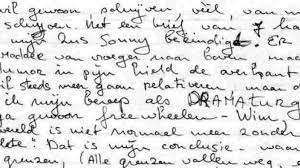 wil gewoon schrijven viel, van m
schrijven. Met een brief van J ha
mijn zus Sonny beëindigd. ER
van vroeger naar boven
humor in pijn hield de
il steeds meer gaan relativeren maar d
ik mijn beroep als DRAMATURG
gewoon freewheelen – Wim,
wereld is niet normaal meer zonder
" Dat is mijn conclusie. waar
grenzen, (Alle grenzen vallen weg